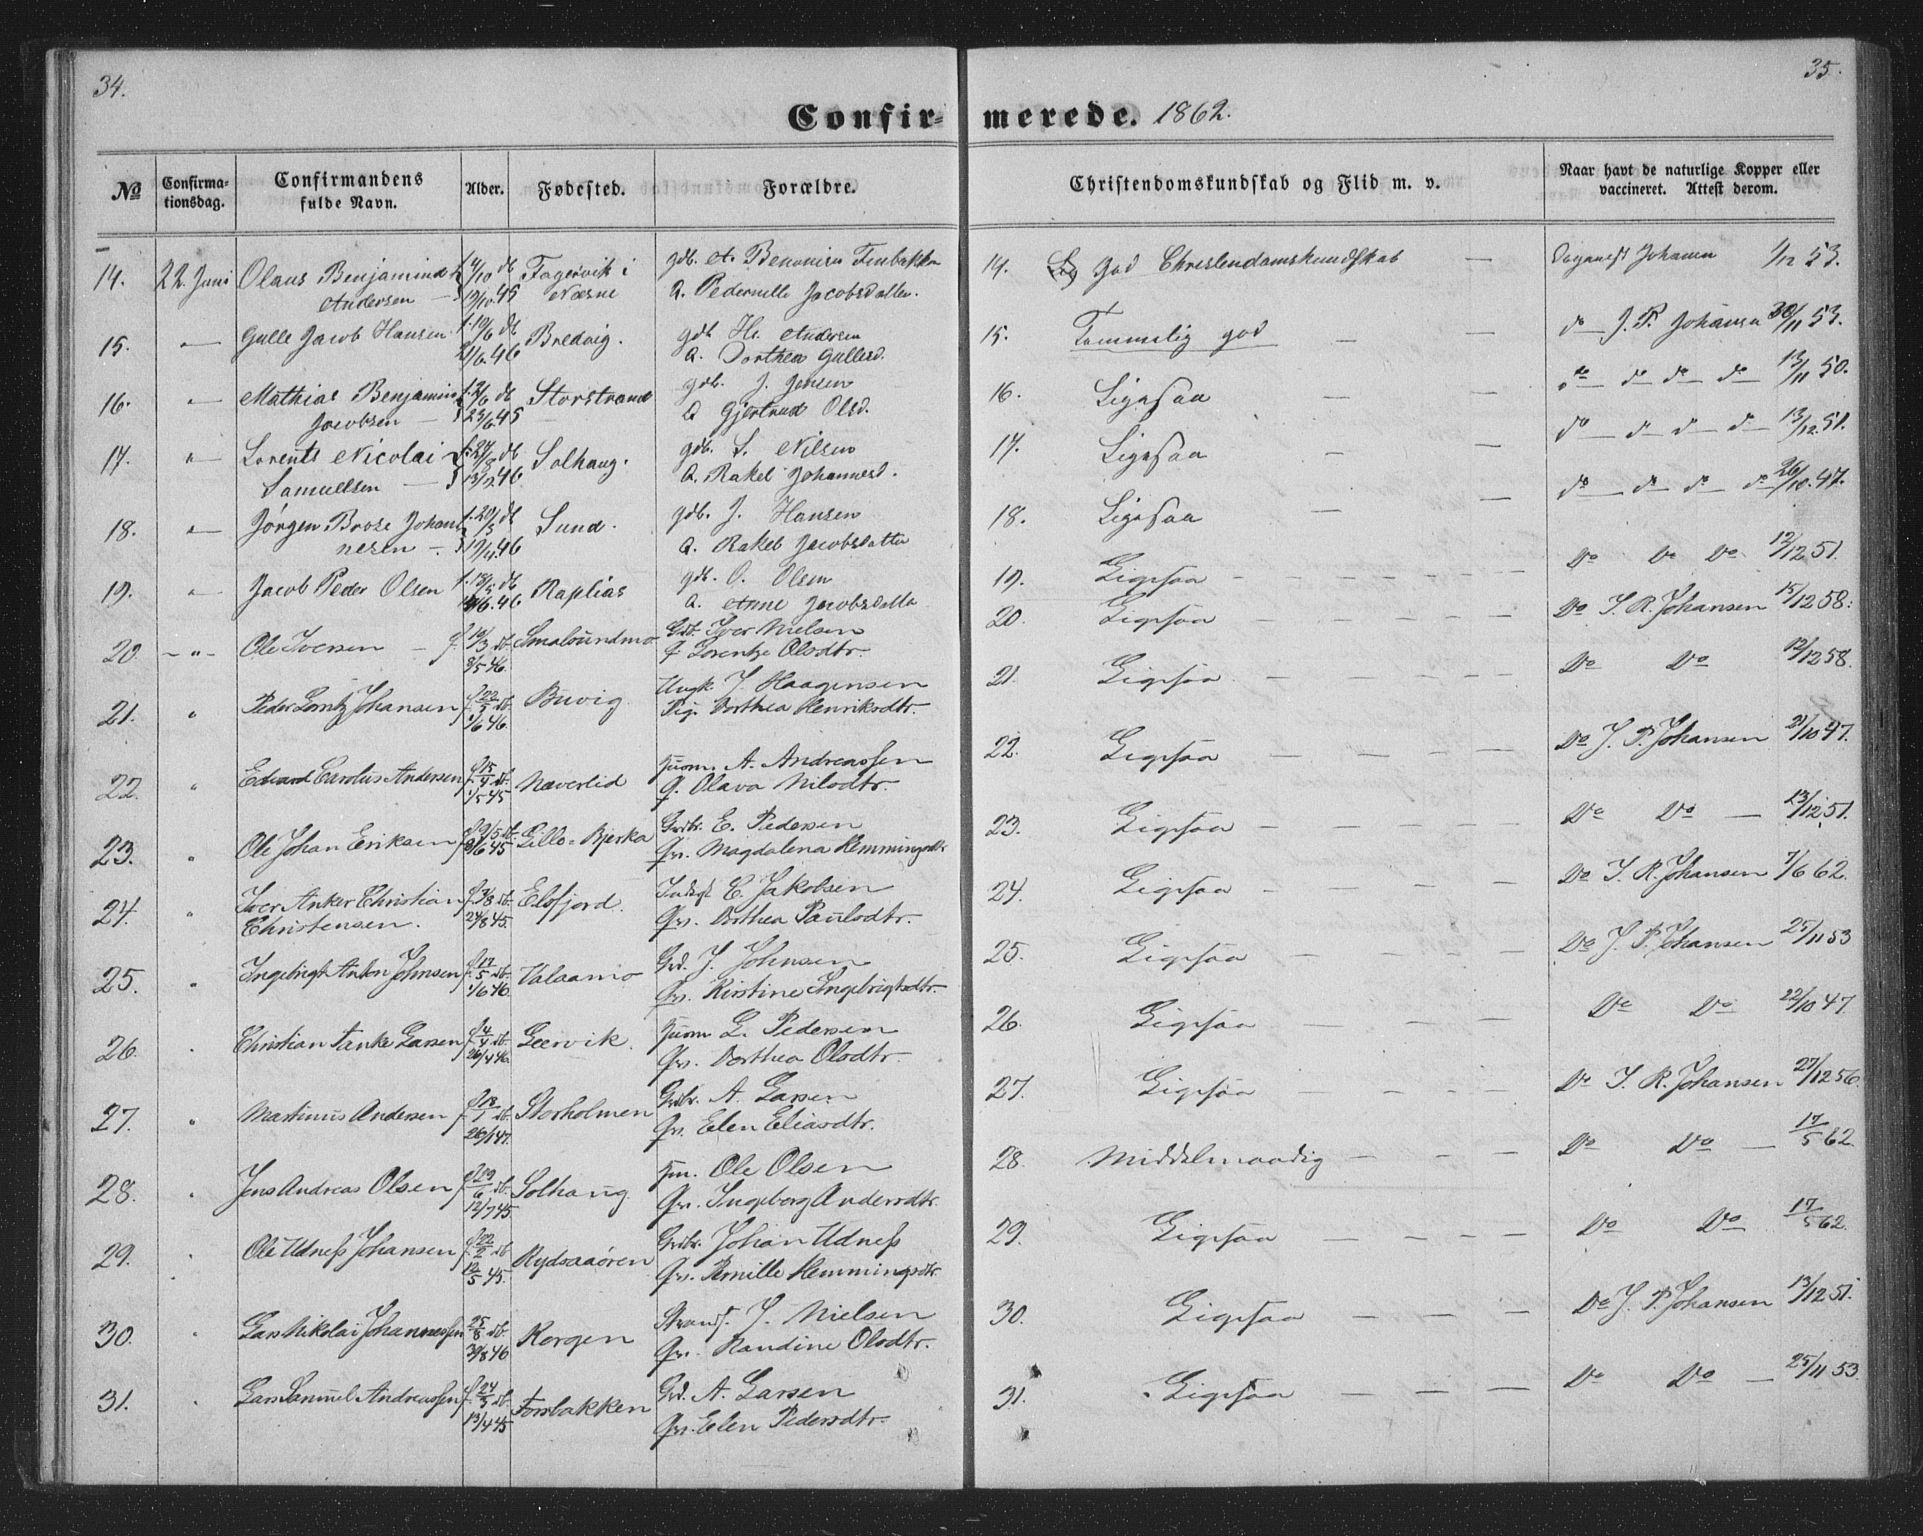 34.
35.
Confir-
merede. 1862.
No
Confirma-
tionsdag.
Confirmandens
fulde Navn.
Alder.
Fødested.
Forældre.
Christendomskundskab og Flid m. v.
Naar havt de naturlige Kopper eller
vaccineret. Attest derom.
14. 22. Juni Olaus Benjamin Fagervik i gdb. A. Benonisen Finbakken
Andersen 45 Næsne Q. Pedernille Jacobsdatter.
15. " Gulle Jacob Hansen Bredvig. gdb. Hs. Andersen
21/6.46 Q. Dorthea Gullesd.
16. " Mathias Benjamin Storstrand gdb. J. Jensen
Jacobsen 23/6.45 Q Gjertrud Olsd.
17. " Lorents Nicolai Solhaug. gdb. S. Nilsen
Samuelsen 46 Q. Rakel Johannesd.
18. " Jørgen Brose Johan- Sund. gdb. J. Hansen
nesen 46 Q. Rakel Jacobsdatter
19. " Jacob Peder Olsen Raplias gdb. O. Olsen
46 Q. Anne Jacobsdatter
20. " Ole Iversen f. 19/3 db. Smalsundmo Gdb. Iver Nielsen
3/5 46. Q Lorentze Olsdtr.
21. " Peder Lorntz Johansen f. 22/3 db. Buvig Ungk. J. Haagensen
1/6 46. Pig. Dorthea Henriksdtr.
22. " Edvard Carolus Andersen f. 15/4 db. Naverlid Huusm. A. Andreassen
1/5 45 Q. Olava Nilsdtr.
23. " Ole Johan Eriksen db. Lille-Bjerka Grdbr. E. Pedersen
8/6 45 Qv. Magdalena Hemmingsdtr
24. " Iver Anker Christian f. 3/8 db. Elsfjord. Inds. C. Jakobsen
Christensen. 24/8 45. Qv. Dorthea Paulsdtr.
25. " Ingebrigt Anton Johnsen f. 17/5 db. Valaamo Grd. J. Johnsen
1/6 46. Qv. Kirstine Ingebrigtsdtr.
26. " Christian Tanke Larsen f. 4/4 db. Leervik. Huusm L. Pedersen
26/4 46. Qv. Dorthea Olsdtr.
27. " Martinus Andersen f. 18/1 db. Storholmen Grdbr. A. Larsen
26/1 47. Qv. Elen Eliasdtr.
28. " Jens Andreas Olsen f. 29/6 db. Solhaug Hm. Ole Olsen
12/7 45. Qv. Ingeborg Andersdtr.
29. " Ole Udness Johansen f. 22/2 db. Rydsaaøren Grdbr. Johan Udness
12/5 45. Qv. Pernille Hemmingsdtr.
30. " Lars Nikolai Johannessen 25/8 db. Korgen Strands. J. Nielsen
30/8 46 Qv. Randine Olsdtr.
31. " Lars Samuel Andreassen f. 24/3 db. Forsbakken Grd. A. Larsen
13/4 45 Qv. Elen Pedersdtr.
14. god Christendomskundskab — Johansen 1/12 53.
15. Temmelig god — do J. P. Johansen 30/11 53.
16. Ligesaa — do do do do 13/11 50.
17. Ligesaa — do do do do 13/12.51.
18. Ligesaa — do do do do 26/10.47.
19. Ligesaa — Do Do Do 12/12 51.
20. Ligesaa — Do I. R. Johansen 15/12 58.
21. Ligesaa — Do Do 12/12 58.
22. Ligesaa — Do J. P. Johansen 21/10 47.
23. Ligesaa — Do Do — 13/12 51.
24. Ligesaa — Do I. R. Johansen 7/6 62.
25. Ligesaa — Do J. P. Johansen 25/11 53
26. Ligesaa — Do Do 22/10 47
27. Ligesaa — Do I. R. Johansen 27/12 56
28. Middelmaadig — Do Do — 17/5 62
29. Ligesaa — Do Do — 17/5 62.
30. Ligesaa — Do J. P. Johansen 13/12 51.
31. Ligesaa — Do Do — 25/11 53.